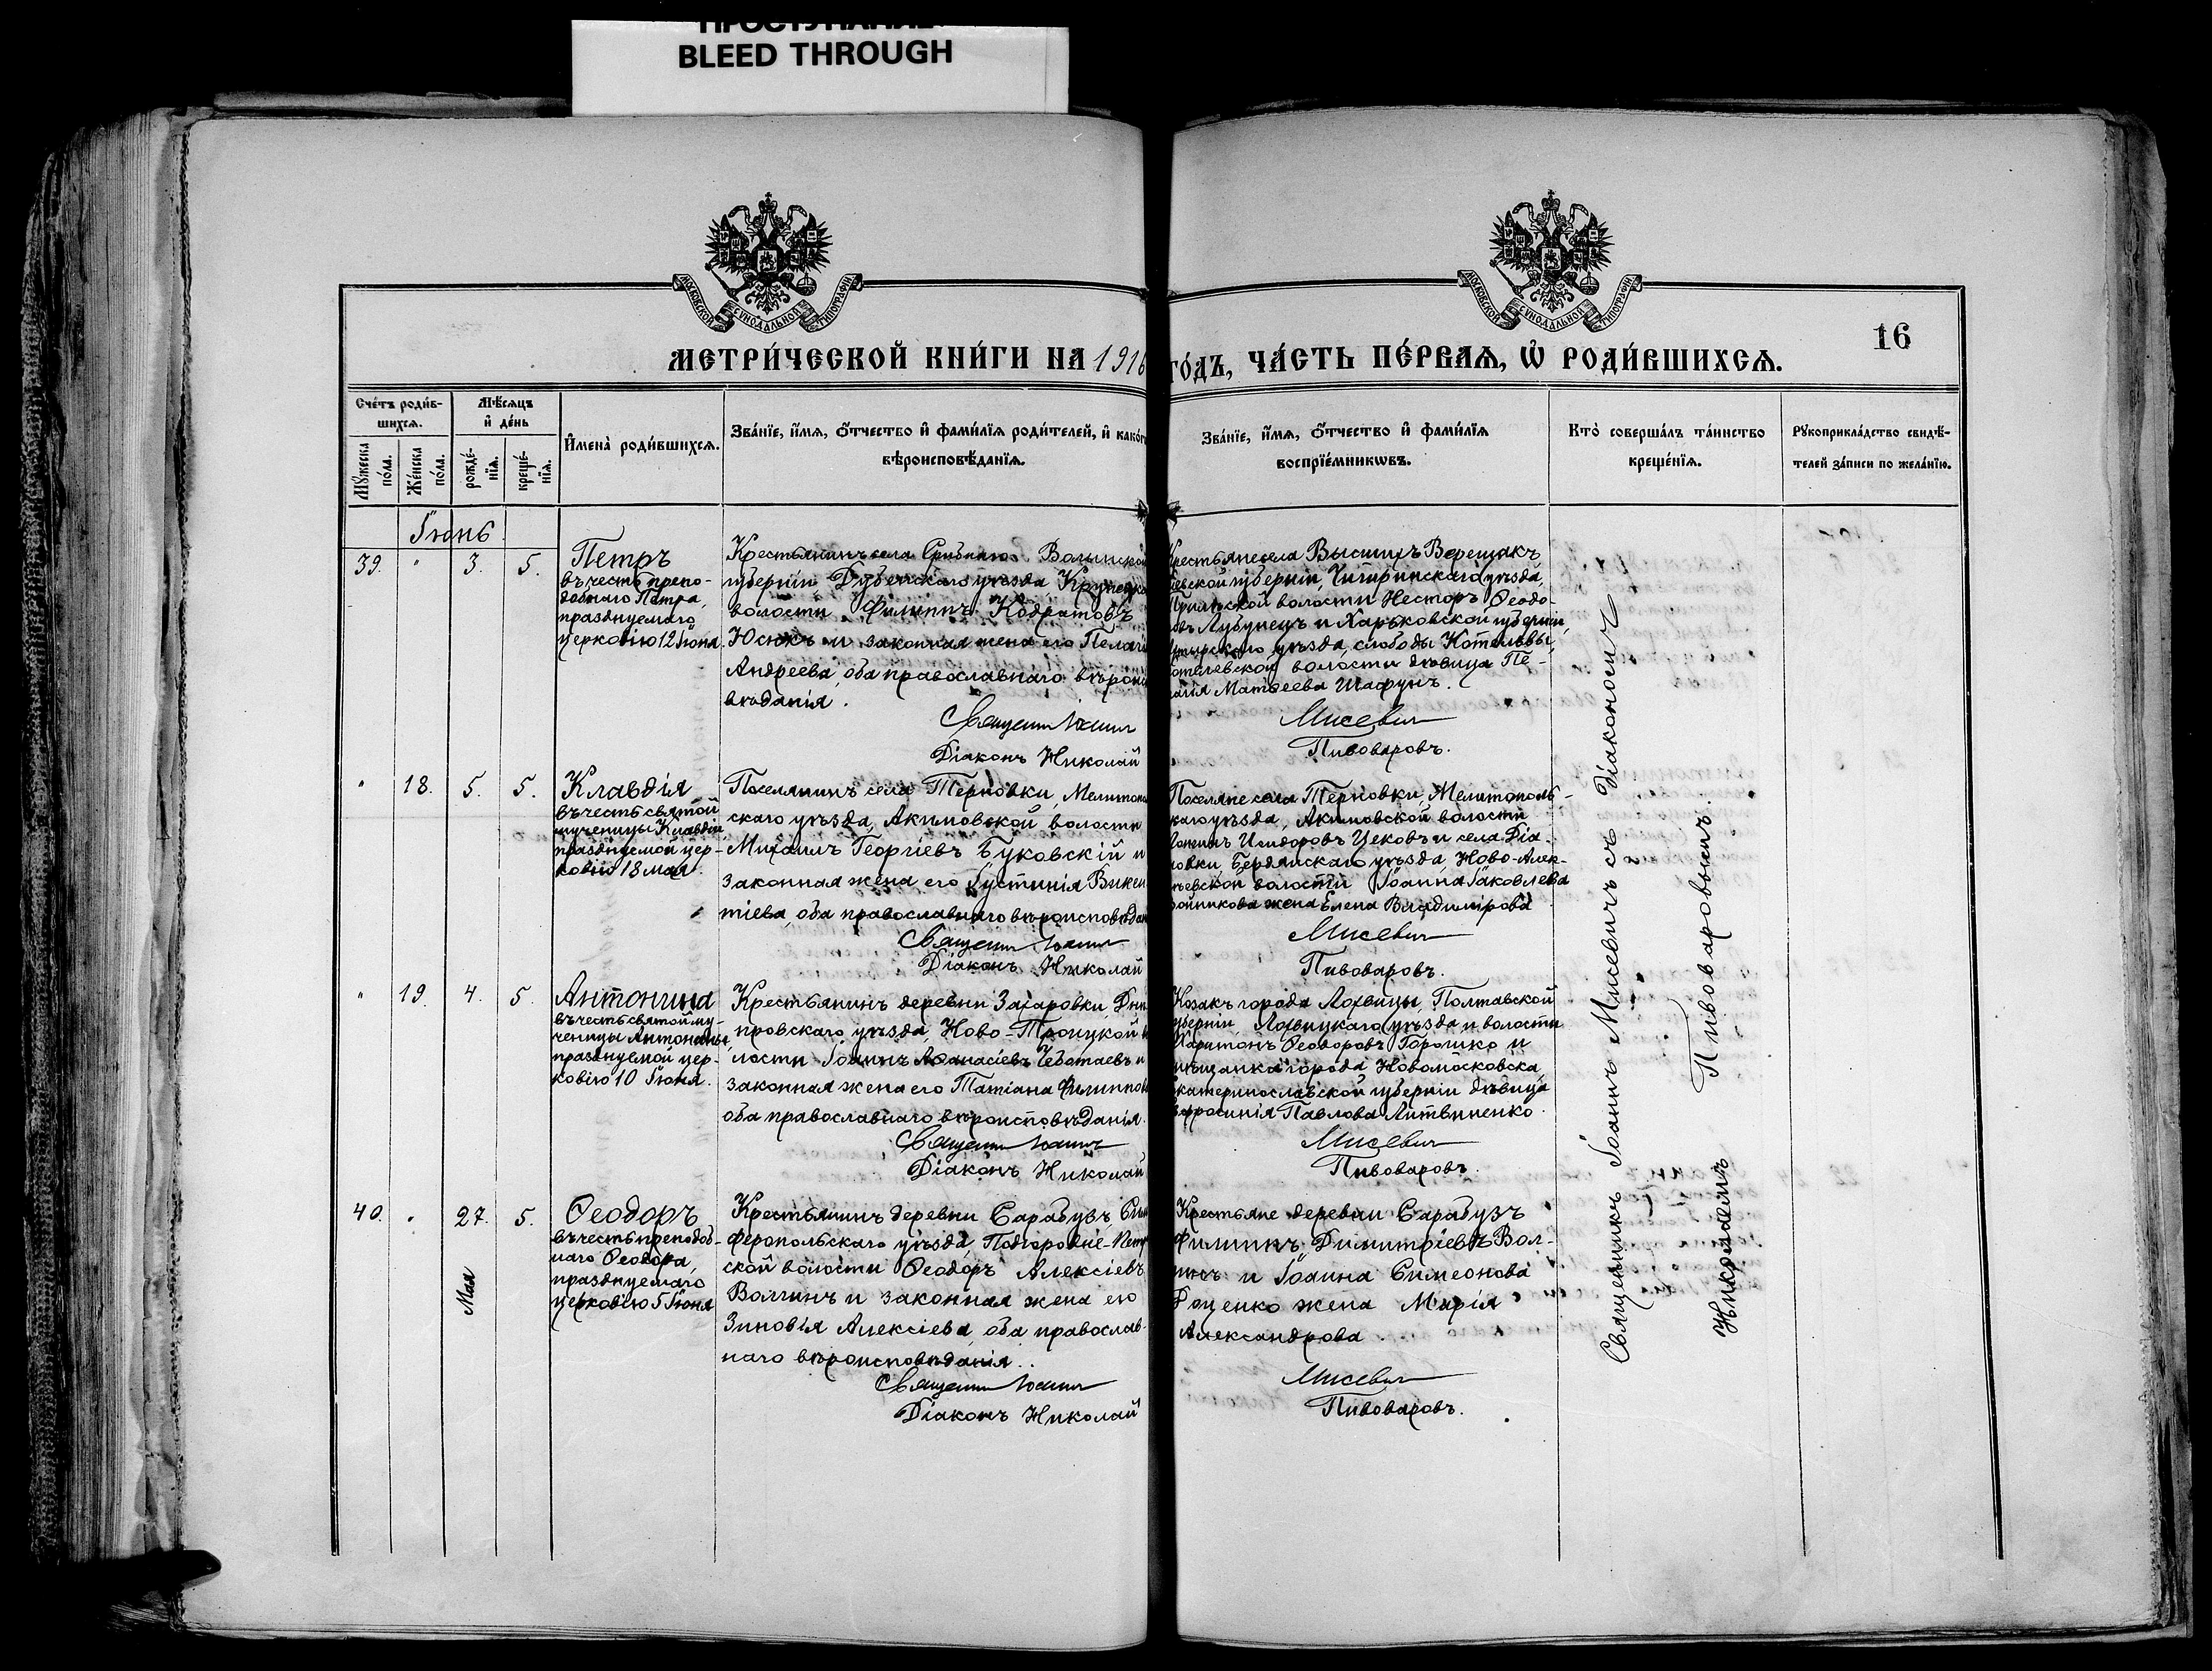 ПРОСТУПАНИЕ
BLEED THROUGH
МОСКОВСКОЙ СУНОДАЛЬНОЙ ТИПОГРАФІИ
МОСКОВСКОЙ СУНОДАЛЬНОЙ ТИПОГРАФІИ
16
МЕТРИ́ЧЕСКОЙ КНИ́ГИ НА 1916
ГО́ДЪ, ЧА́СТЬ ПЕ́РВАѦ, Ѡ҆ РОДИ́ВШИХСѦ.
Сче́тъ роди́в-
шихсѧ.
Мѣ́сѧцъ
и҆ де́нь
Мꙋ́жеска
по́ла.
Же́нска
по́ла.
рожде́-
нїѧ.
креще́-
нїѧ.
И҆мена̀ роди́вшихсѧ.
Зва́нїе, и҆́мѧ, ѻ҆́тчество и҆ фами́лїѧ роди́телей, и҆ како́гѡ
вѣроисповѣ́данїѧ.
Зва́нїе, и҆́мѧ, ѻ҆́тчество и҆ фами́лїѧ
воспрїе́мникѡвъ.
Кто̀ соверша́лъ та́инство
креще́нїѧ.
Рꙋкоприкла́дство свидѣ́-
телей за́писи по жела́нїю.
Іюнь
39. " 3. 5.
Петръ
въ честь препо-
добнаго Петра,
празднуемаго
церковію 12 Іюня.
Крестьянинъ села Волынской
губерніи Дубенскаго уѣзда,
волости Филиппъ Кодратовъ
Юсюкъ и законная жена его Пелагія
Андреева, оба православнаго вѣроис
вѣданія.
Священн Іоаннъ
Діаконъ Николай
Крестьяне села Высшихъ Верещакъ
Кіевской губерніи, Чигиринскаго уѣзда,
волости Несторъ Ѳеодо-
ровъ Лубунецъ и Харьковской губерніи,
уѣзда, слободы Котельвы,
Котелевской волости дѣвица Пе-
лагія Матѳеева Шафунъ.
Мисевич
Пивоваровъ.
" 18. 5. 5.
Клавдія
въ честь святой
мученицы Клавдіи,
празднуемой цер-
ковію 18 мая.
Поселянинъ села Терновки, Мелитополь
скаго уѣзда, Акимовской волости
Михаилъ Георгіевъ Буковскій и
законная жена его Іустинія Викен
тіева, оба православнаго вѣроисповѣдан
Священн Іоаннъ
Діаконъ Николай
Поселяне села Терновки, Мелитополь-
скаго уѣзда, Акимовской волости
Исидоровъ Цековъ и села Діа-
новки, Бердянскаго уѣзда, Ново-Алек-
сѣевской волости Іоанна Іаковлева
жена Елена Владимірова
Мисевич
Пивоваровъ.
" 19. 4. 5.
Антонина
въ честь святой му-
ченицы Антонины,
празднуемой цер-
ковію 10 Іюня.
Крестьянинъ деревни Захаровки, Днѣ
провскаго уѣзда, Ново-Троицкой во
лости Іоаннъ Аѳанасіевъ Чеботаевъ и
законная жена его Татіана Филиппова
оба православнаго вѣроисповѣданія.
Священн Іоаннъ
Діаконъ Николай
Козакъ города Лохвицы, Полтавской
губерніи, Лохвицкаго уѣзда и волости
Харитонъ Ѳеодоровъ Горошко и
мѣщанка города Новомосковска,
Екатеринославской губерніи дѣвица
Евфросинія Павлова Литвиненко.
Мисевич
Пивоваровъ.
40. " 27. 5.
Мая
Ѳеодоръ
въ честь преподоб-
наго Ѳеодора,
празднуемаго
церковію 5 Іюня
Крестьянинъ деревни Сарабузъ, Сим
феропольскаго уѣзда, Подгородне-Петр
ской волости Ѳеодоръ Алексіевъ
Волгинъ и законная жена его
Зиновія Алексіева, оба православ-
наго вѣроисповѣданія.
Священн Іоаннъ
Діаконъ Николай
Крестьяне деревни Сарабузъ
Филиппъ Димитріевъ Вол-
гинъ и Іоанна Симеонова
жена Марія
Александрова.
Мисевич
Пивоваровъ.
Священникъ Іоаннъ Мисевичъ съ Діакономъ
Николаемъ Пивоваровымъ.